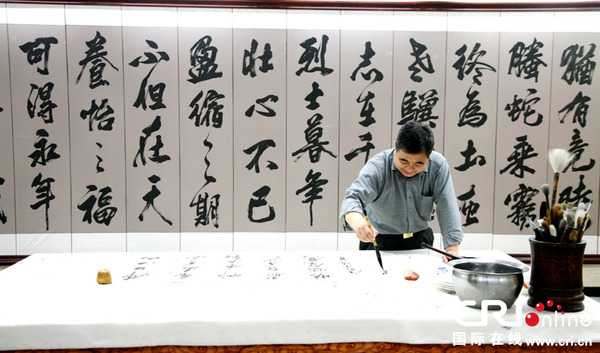 猶有竟時
騰蛇乘霧
終為土灰
老驥
志在千
烈士暮年
壯心不已
盈縮之期
不但在天
養怡之福
可得永年
CRI online
国际在线 www.cri.com.cn